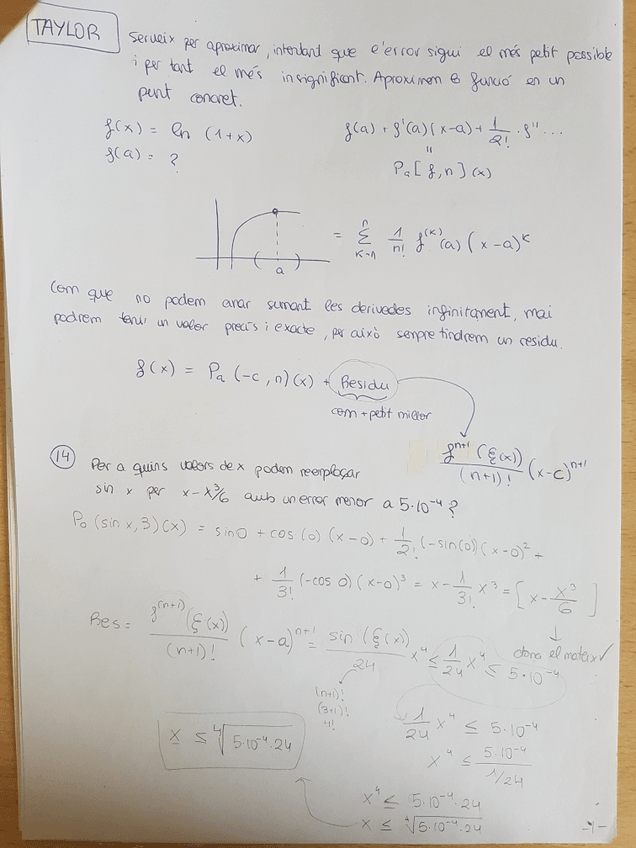 TAYLOR
Serveix per aproximar, intentant que l'error sigui el més petit possible
i per tant el més insignificant. Aproximem la funció en un
punt concret.
f(x) = ln (1+x)
f(a) = ?
f(a) + f'(a)(x-a) + 1/2! · f'' ...
"
Pa [f,n] (x)
a
= Σ n K=n 1/n! f^(K)(a) (x-a)^K
Com que no podem anar sumant les derivades infinitament, mai
podrem tenir un valor precís i exacte, per això sempre tindrem un residu.
f(x) = Pa (-c, n)(x) + Residu
com + petit millor
f^n+1 (ξ(x)) / (n+1)! (x-c)^n+1
14 Per a quins valors de x podem reemplaçar
sin x per x - x³/6 amb un error menor a 5·10⁻⁴?
P0 (sin x, 3)(x) = sin 0 + cos (0) (x-0) + 1/2! (-sin(0))(x-0)² +
+ 1/3! (-cos 0)(x-0)³ = x - 1/3! x³ = [x - x³/6]
dona el mateix ✓
Res = f^(n+1) (ξ(x)) / (n+1)! (x-a)^n+1 = sin (ξ(x)) / 24 x⁴ ≤ 1/24 x⁴ ≤ 5·10⁻⁴
(n+1)!
(3+1)!
4!
1/24 x⁴ ≤ 5·10⁻⁴
x⁴ ≤ 5·10⁻⁴ / 1/24
x⁴ ≤ 5·10⁻⁴·24
x ≤ ⁴√5·10⁻⁴·24
x ≤ ⁴√5·10⁻⁴·24
-1-